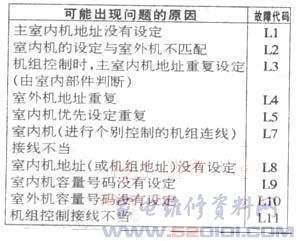 可能出现问题的原因 故障代码
主室内机地址没有设定 L1
室内机的设定与室外机不匹配 L2
机组控制时,主室内机地址重复设定 L3
(由室内部件判断)
室外机地址重复 L4
室内机优先设定重复 L5
室内机(进行个别控制的机组连线) L7
接线不当
室内机地址(或机组地址)没有设定 L8
室内机容量号码没有设定 L9
室外机容量号码没有设定 L10
机组控制接线不当 L11
家电维修资料网
www.520101.com